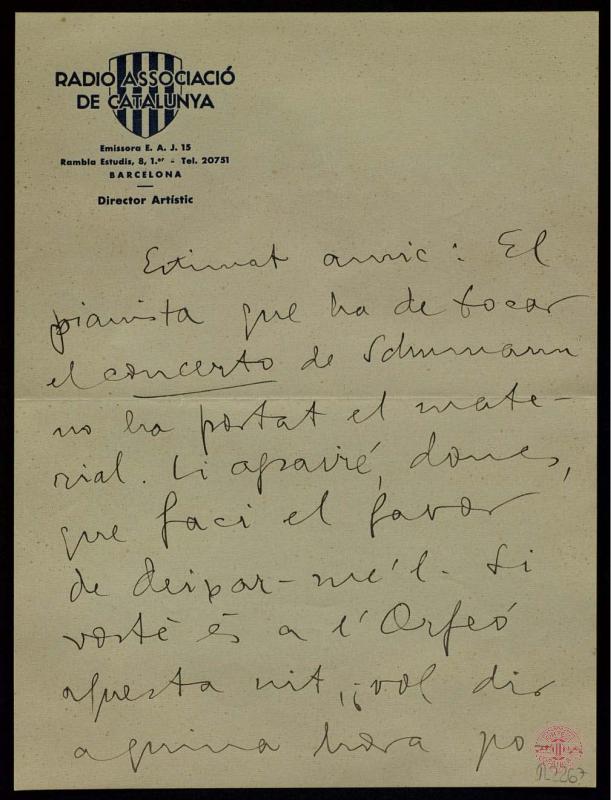 RADIO ASSOCIACIÓ
DE CATALUNYA
Emissora E. A. J. 15
Rambla Estudis, 8, 1.er - Tel. 20751
BARCELONA
Director Artístic
Estimat amic: El
pianista que ha de tocar
el concerto de Schumann
no ha portat el mate-
rial. Li agrairé, doncs,
que faci el favor
de deixar-me'l. Si
vostè és a l'Orfeó
aquesta nit, ¿vol dir
a quina hora po-